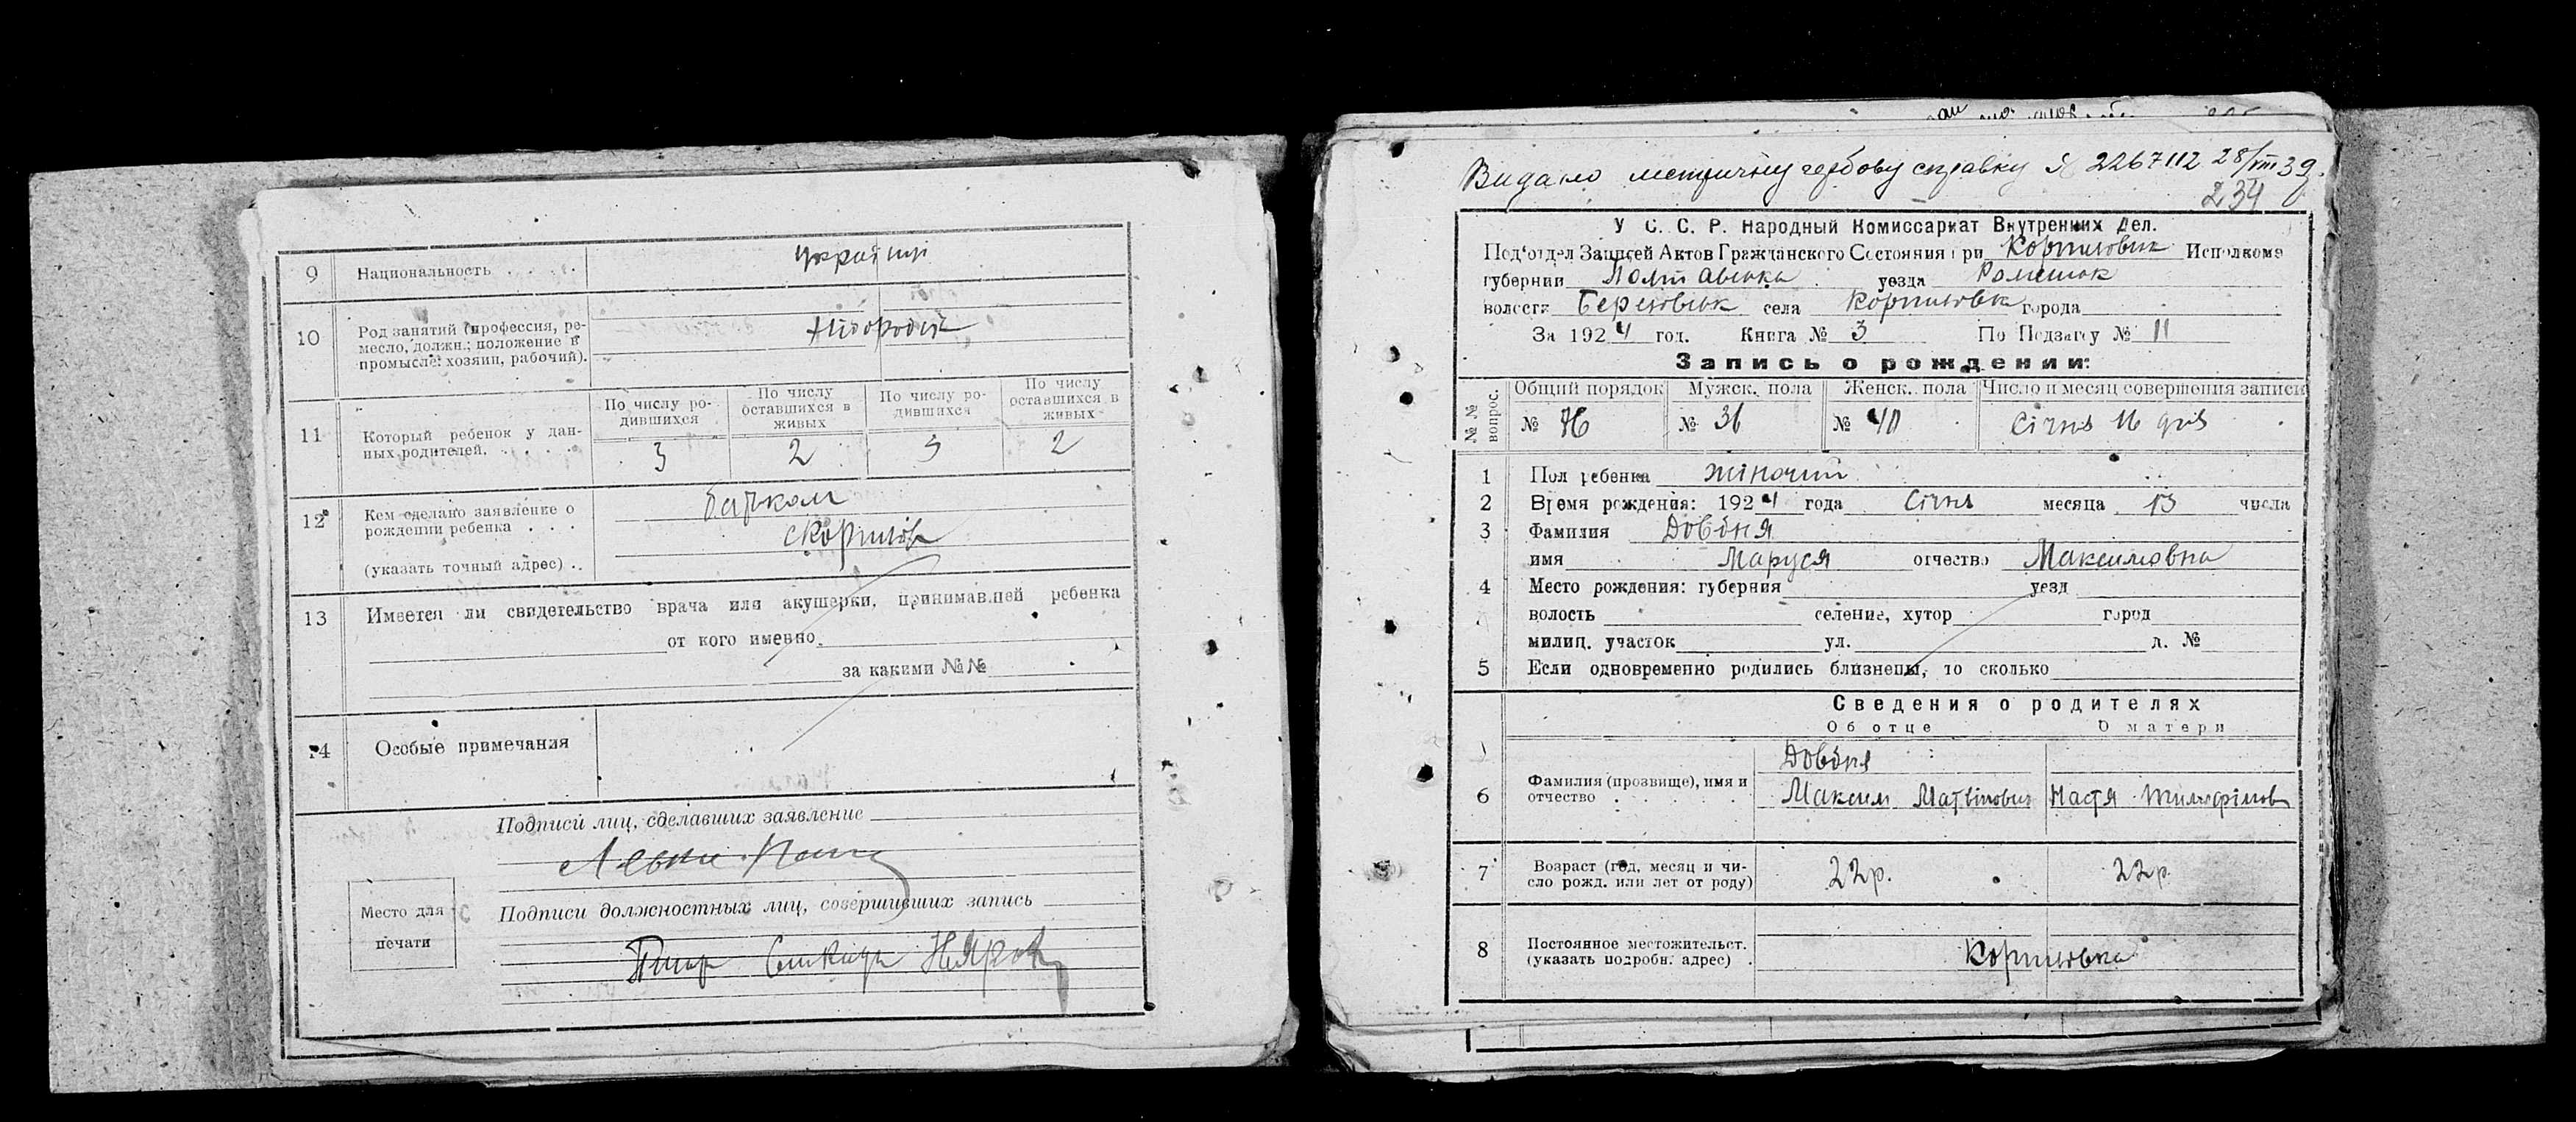 9 Национальность . . . . . українці
10 Род занятий (профессия, ре-
месло, должн.; положение в
промысле: хозяин, рабочий). хлібороби
11 Который ребенок у дан-
ных родителей. . . . . .
По числу ро-
дившихся
По числу
оставшихся в
живых
По числу ро-
дившихся
По числу
оставшихся в
живых
3 2 3 2
12 Кем сделано заявление о
рождении ребенка . . . батьком
(указать точный адрес) . .
13 Имеется ли свидетельство врача или акушерки, принимавшей ребенка
от кого именно
за какими №№
14 Особые примечания
Подписи лиц, сделавших заявление
Место для
печати
Подписи должностных лиц, совершивших запись
Видано метричну гербову справку № 2267112 28/VIII 39
234
У С. С. Р. Народный Комиссариат Внутренних Дел.
Под'отдел Записей Актов Гражданского Состояния при Исполкоме
губернии Полтавська уезда Роменск
волости села города
За 1924 год. Книга № 3 По Подзагсу № 11
Запись о рождении:
№№ вопрос.
Общий порядок Мужск. пола Женск. пола Число и месяц совершения записи
№ 76 № 36 № 40 Січня 16 дня
1 Пол ребенка жіночий
2 Время рождения: 1924 года Січня месяца 13 числа
3 Фамилия Довбня
имя Маруся отчество Максимовна
4 Место рождения: губерния уезд
волость селение, хутор город
милиц. участок ул. д. №
5 Если одновременно родились близнецы, то сколько
Сведения о родителях
Об отце О матери
Довбня
6 Фамилия (прозвище), имя и
отчество . . . . . Максим Матвіович Настя
7 Возраст (год, месяц и чи-
сло рожд. или лет от роду) 22р. 22р.
8 Постоянное местожительст.
(указать подробн. адрес) .